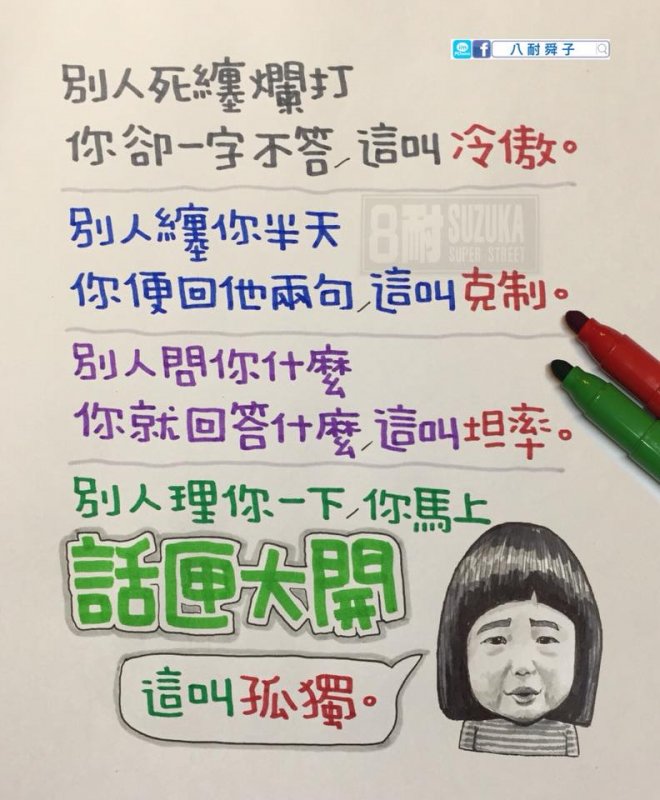 八耐舜子
別人死纏爛打
你卻一字不答,這叫冷傲。
8耐 SUZUKA
SUPER STREET
別人纏你半天
你便回他兩句,這叫克制。
別人問你什麼
你就回答什麼,這叫坦率。
別人理你一下,你馬上
話匣大開
這叫孤獨。